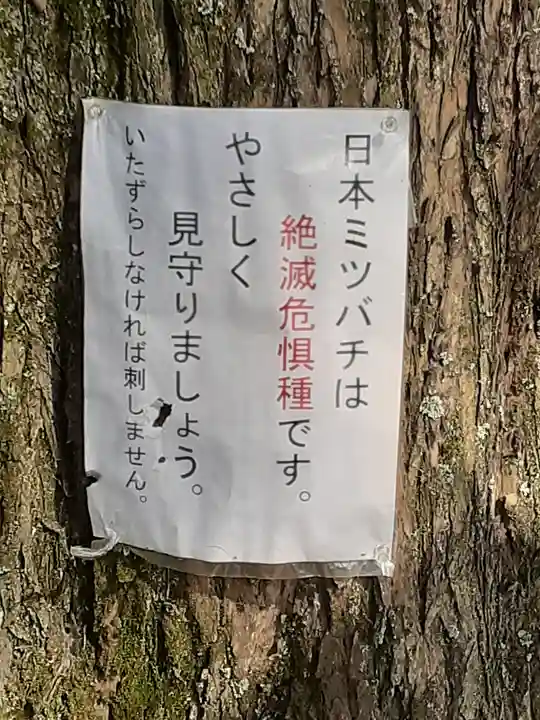 日本ミツバチは
絶滅危惧種です。
やさしく
見守りましょう。
いたずらしなければ刺しません。